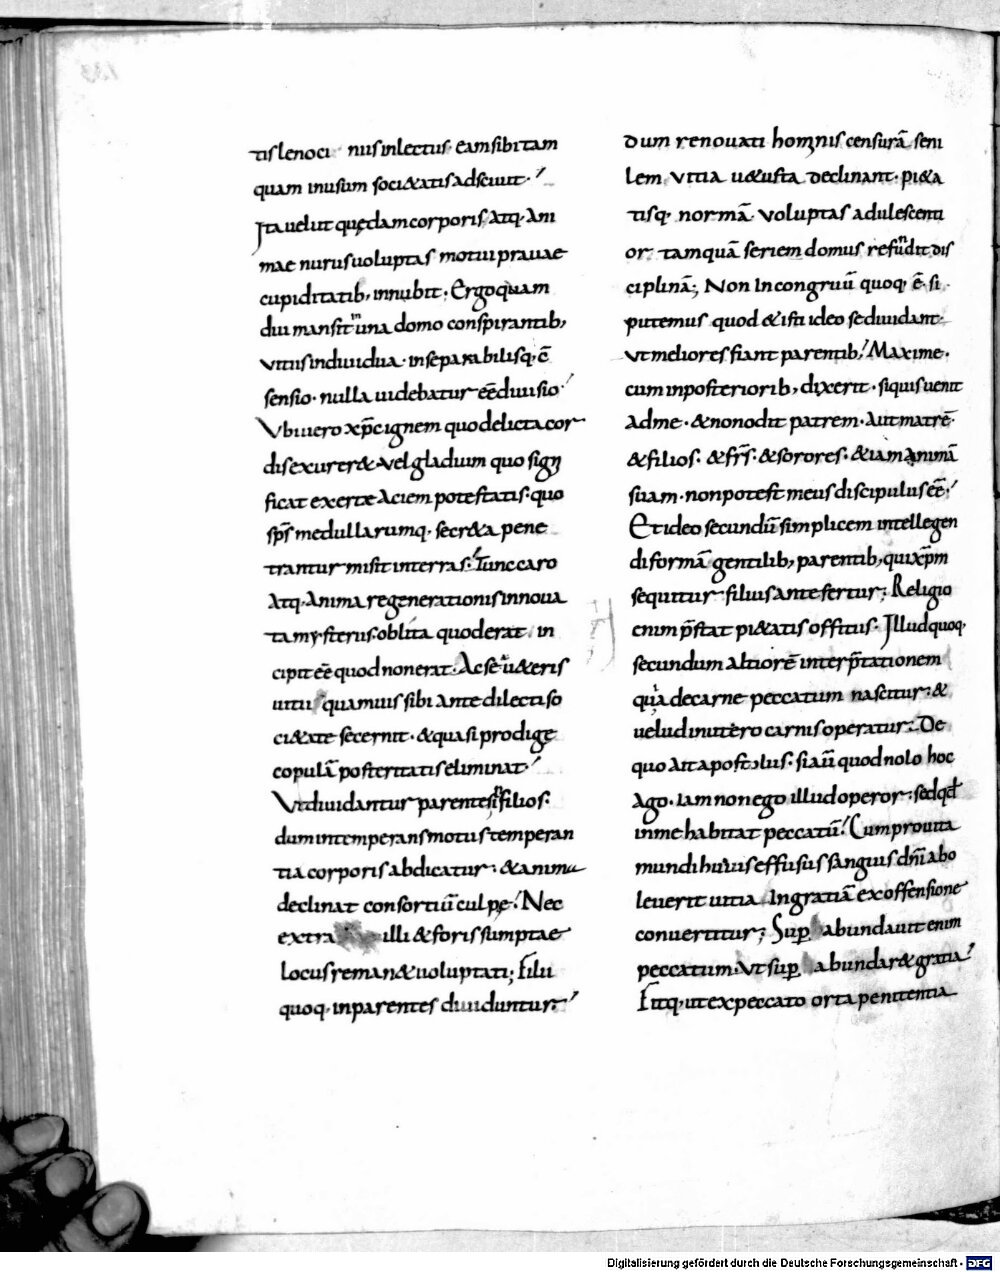 tis lenoci niis inlectus· eam sibi tam
quam in usum soci&atis adsciuit·
Ita uelut quędam corporis atq; ani
mae nurus uoluptas motui prauae
cupiditatib; innubit; Ergo quam
diu mansit in una domo conspirantib;
uitiis indiuidua· inseparabilisq; c̄
sensio· nulla uidebatur eē diuisio·
Vbi uero xp̄c ignem quo delicta cor
dis exurer& vel gladium quo signi
ficat exertae aciem potestatis· quo
sps̄ medullarumq· secr&a pene
trantur misit in terras· Tunc caro
atq; anima regenerationis innoua
ta mysteriis· oblita quod erat· in
cipit eē quod non erat· Ac se u&eris
uitii quamuis sibi ante dilecti so
ci&ate secernit· &quasi prodigę
copulā posteritatis eliminat·
Vt diuidantur parentes in filios·
dum intemperans motus temperan
tia corporis abdicatur· &anima
declinat consortiū culpę· Nec
extra illi &foris sumptae
locus reman& uoluptati; Filii
quoq; in parentes diuiduntur·
dum renouati hominis censurā seni
lem vitia u&usta declinant· pi&a
tisq; normā voluptas adulescenti
or· tamquā seriem domus refundit dis
ciplinā; Non incongruū quoq; ē si
putemus quod &isti ideo se diuidant·
vt meliores fiant parentib; Maxime·
cum in posteriorib; dixerit· siquis uenit
ad me· &non odit patrem· aut matrē·
&filios· &frs̄· &sorores· &iam animā
suam· non potest meus discipulus eē·
Et ideo secundū simplicem intellegen
di formā gentilib; parentib; qui xp̄m
sequitur filius antefertur; Religio
enim p̄stat pi&atis offitiis· Illud quoq·
secundum altiorē interp̄tationem
quia de carne peccatum nascitur· &
uelud in utero carnis operatur· De
quo ait apostolus· si aū quod nolo hoc
ago· iam non ego illud operor· sed qđ
in me habitat peccatū· Cum pro uita
mundi huius effusus sanguis dn̄i abo
leuerit uitia· In gratiā ex offensione
conuertitur; Sup abundauit enim
peccatum· ut sup abundar& gratia·
Fitq; ut ex peccato orta penitentia